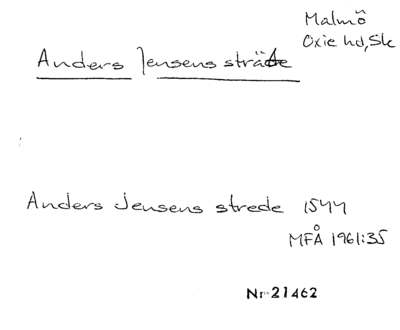 Malmö
Oxie hd, Sk
Anders Jensens sträde
Anders Jensens strede 1544
MFÅ 1961:35
Nr 21462